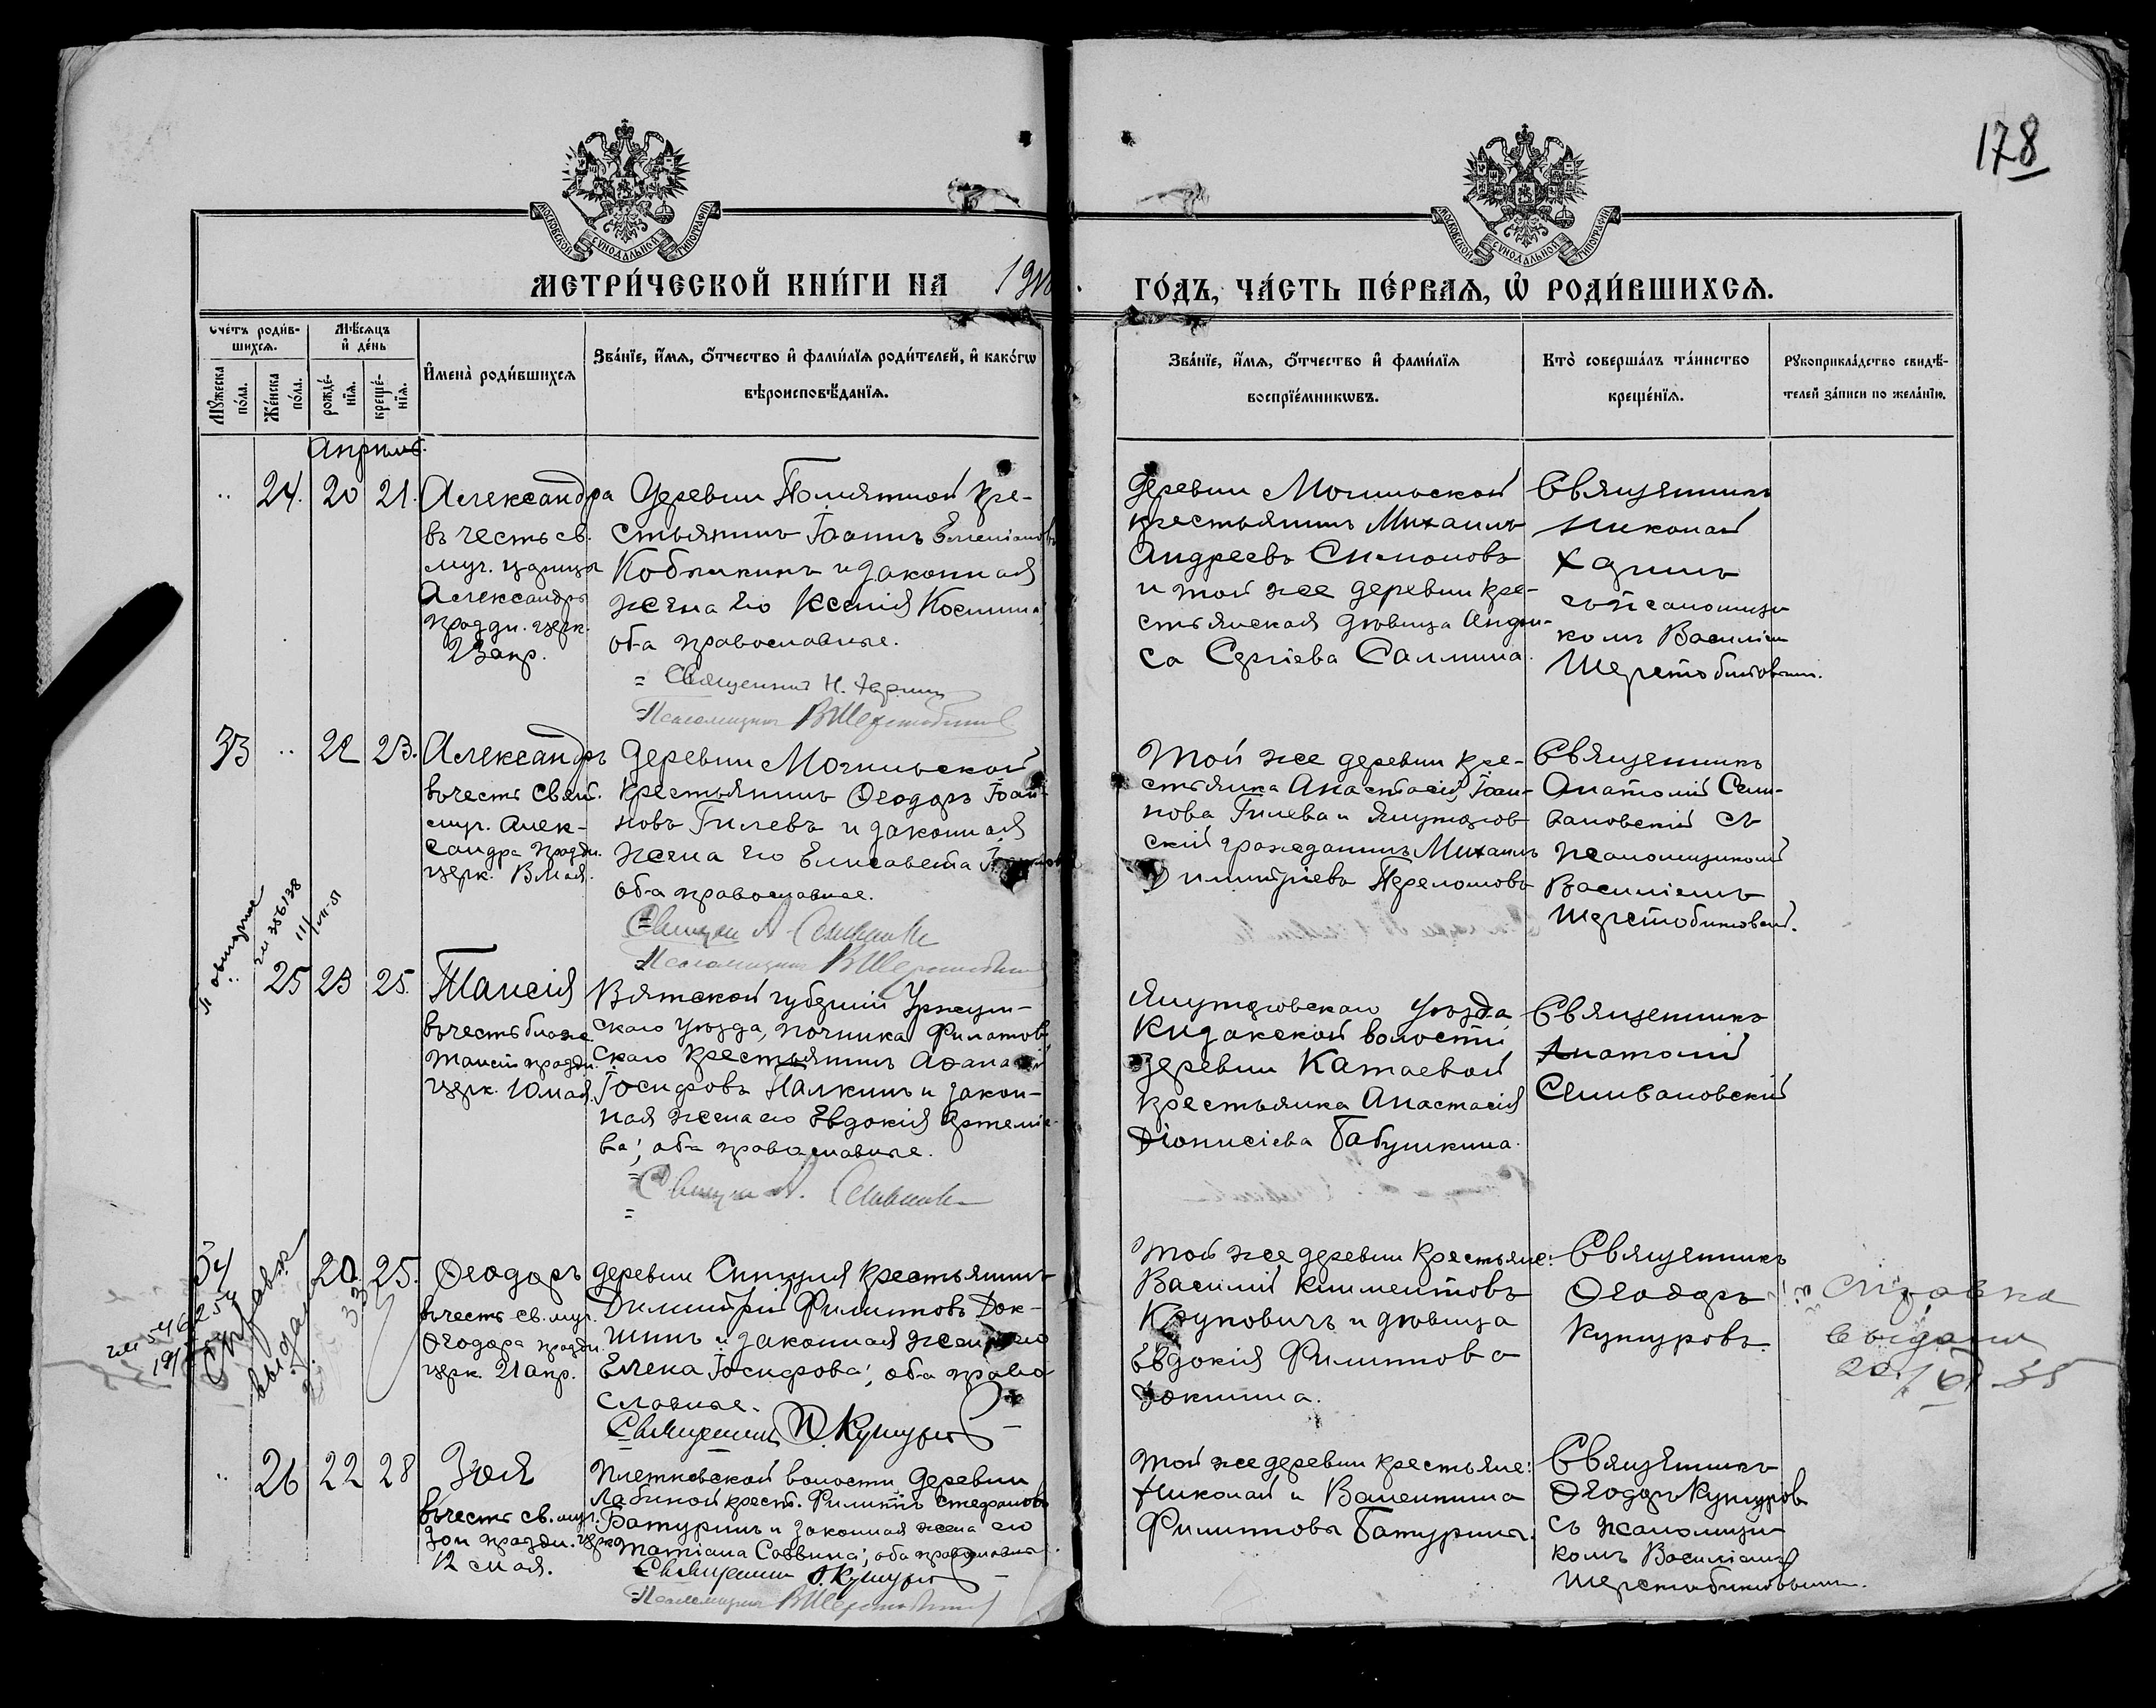 178
МОСКОВСКОЙ СУНОДАЛЬНОЙ ТИПОГРАФІИ
МОСКОВСКОЙ СУНОДАЛЬНОЙ ТИПОГРАФІИ
МЕТРИ́ЧЕСКОЙ КНИ́ГИ НА
ГО́ДЪ, ЧА́СТЬ ПЕ́РВАѦ, Ѡ҆ РОДИ́ВШИХСѦ.
Сче́тъ роди́в-
шихсѧ.
Мѣ́сѧцъ
и҆ де́нь
Мꙋ́жеска
по́ла.
Же́нска
по́ла.
рожде́-
нїѧ.
креще́-
нїѧ.
И҆мена̀ роди́вшихсѧ
Зва́нїе, и҆́мѧ, ѻ҆́тчество и҆ фами́лїѧ роди́телей, и҆ како́гѡ
вѣроисповѣ́данїѧ.
Зва́нїе, и҆́мѧ, ѻ҆́тчество и҆ фами́лїѧ
воспрїе́мникѡвъ.
Кто̀ соверша́лъ та́инство
креще́нїѧ.
Рꙋкоприкла́дство свидѣ́-
телей за́писи по жела́нїю.
Апрель.
24. 20 21.
Александра
въ честь св.
муч. царицы
Александры
праздн. церк.
23 апр.
Деревни кре-
стьянинъ Іоаннъ Емеліановъ
Кобылкинъ и законная
жена его Ксенія Космина,
оба православные.
Священникъ Н. Харинъ
Псаломщикъ В Шерстобитовъ
Деревни Могильской
крестьянинъ Михаилъ
Андреевъ Симоновъ
и той же деревни кре-
стьянская дѣвица Анфи-
са Сергіева Саллина.
Священникъ
Николай
Харинъ
съ псаломщи-
комъ Василіемъ
Шерстобитовымъ.
33 22 23.
Александръ
въ честь Свят.
муч. Алек-
сандра праздн.
церк. 13 Мая.
Деревни Могильской
крестьянинъ Ѳеодоръ Іоан-
новъ Гилевъ и законная
жена его Елисавета
оба православные.
Священ А Селивановскій
Псаломщикъ В Шерстобитовъ
Той же деревни кре-
стьянка Анастасія Іоан-
нова Гилева и Ялуторов-
скій гражданинъ Михаилъ
Димитріевъ Переломовъ
Священникъ
Анатолій Сели-
вановскій съ
псаломщикомъ
Василіемъ
Шерстобитовымъ.
25 23 25.
Таисія
въ честь блаж.
Таисіи праздн.
церк. 10 мая.
Вятской губерніи Уржум-
скаго уѣзда, починка Филатов-
скаго крестьянинъ Аѳанасій
Іосифовъ Палкинъ и закон-
ная жена его Евдокія Артеміе-
ва; оба православные.
Священ А. Селивановскій
Ялуторовскаго уѣзда
Кизакской волости
деревни Катаевой
крестьянка Анастасія
Діонисіева Бабушкина.
Священникъ
Анатолій
Селивановскій
34 20. 25.
Справка
выдана
Ѳеодоръ
въ честь св. муч.
Ѳеодора праздн.
церк. 21 апр.
деревни крестьянинъ
Димитрій Филипповъ Док-
шинъ и законная жена его
Елена Іосифова; оба право-
славные.
Священникъ Ѳ. Кутуровъ
Той же деревни крестьяне:
Василій Климентовъ
Круповичъ и дѣвица
Евдокія Филиппова
Докшина.
Священникъ
Ѳеодоръ
Кутуровъ.
Справка
выдана
35
26 22 28
Зоя
въ честь св. муч.
Зои праздн. церк.
12 мая.
Плетневской волости деревни
Лабиной крест. Филиппъ Стефановъ
Батуринъ и законная жена его
Татіана Саввина; оба православные.
Священникъ Ѳ. Кутуровъ
Псаломщикъ В Шерстобитовъ
Той же деревни крестьяне:
Николай и Валентина
Филипповы Батурины.
Священникъ
Ѳеодоръ Кутуровъ
съ псаломщи-
комъ Василіемъ
Шерстобитовымъ.